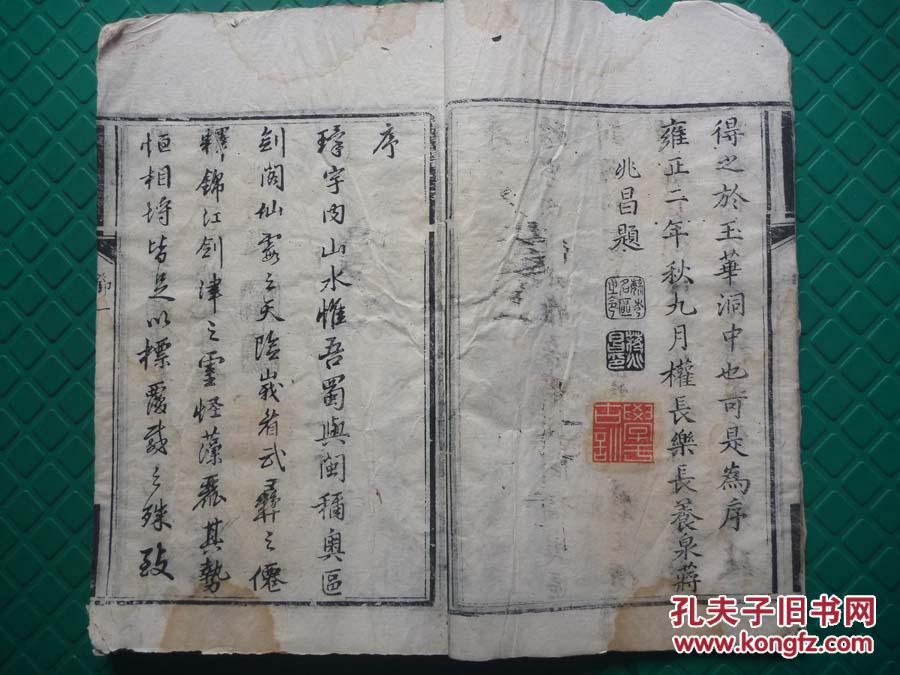 得之於玉華洞中也可是為序
雍正二年秋九月權長樂長養泉蔣
兆昌題
學古
序
宇内山水惟吾蜀與閩稱奥區
劍閣仙霞之天險峨眉武彝之僊
釋錦江劍津之靈怪藻麗其勢
恒相埒皆足以標覆載之殊致
孔夫子旧书网
www.kongfz.com